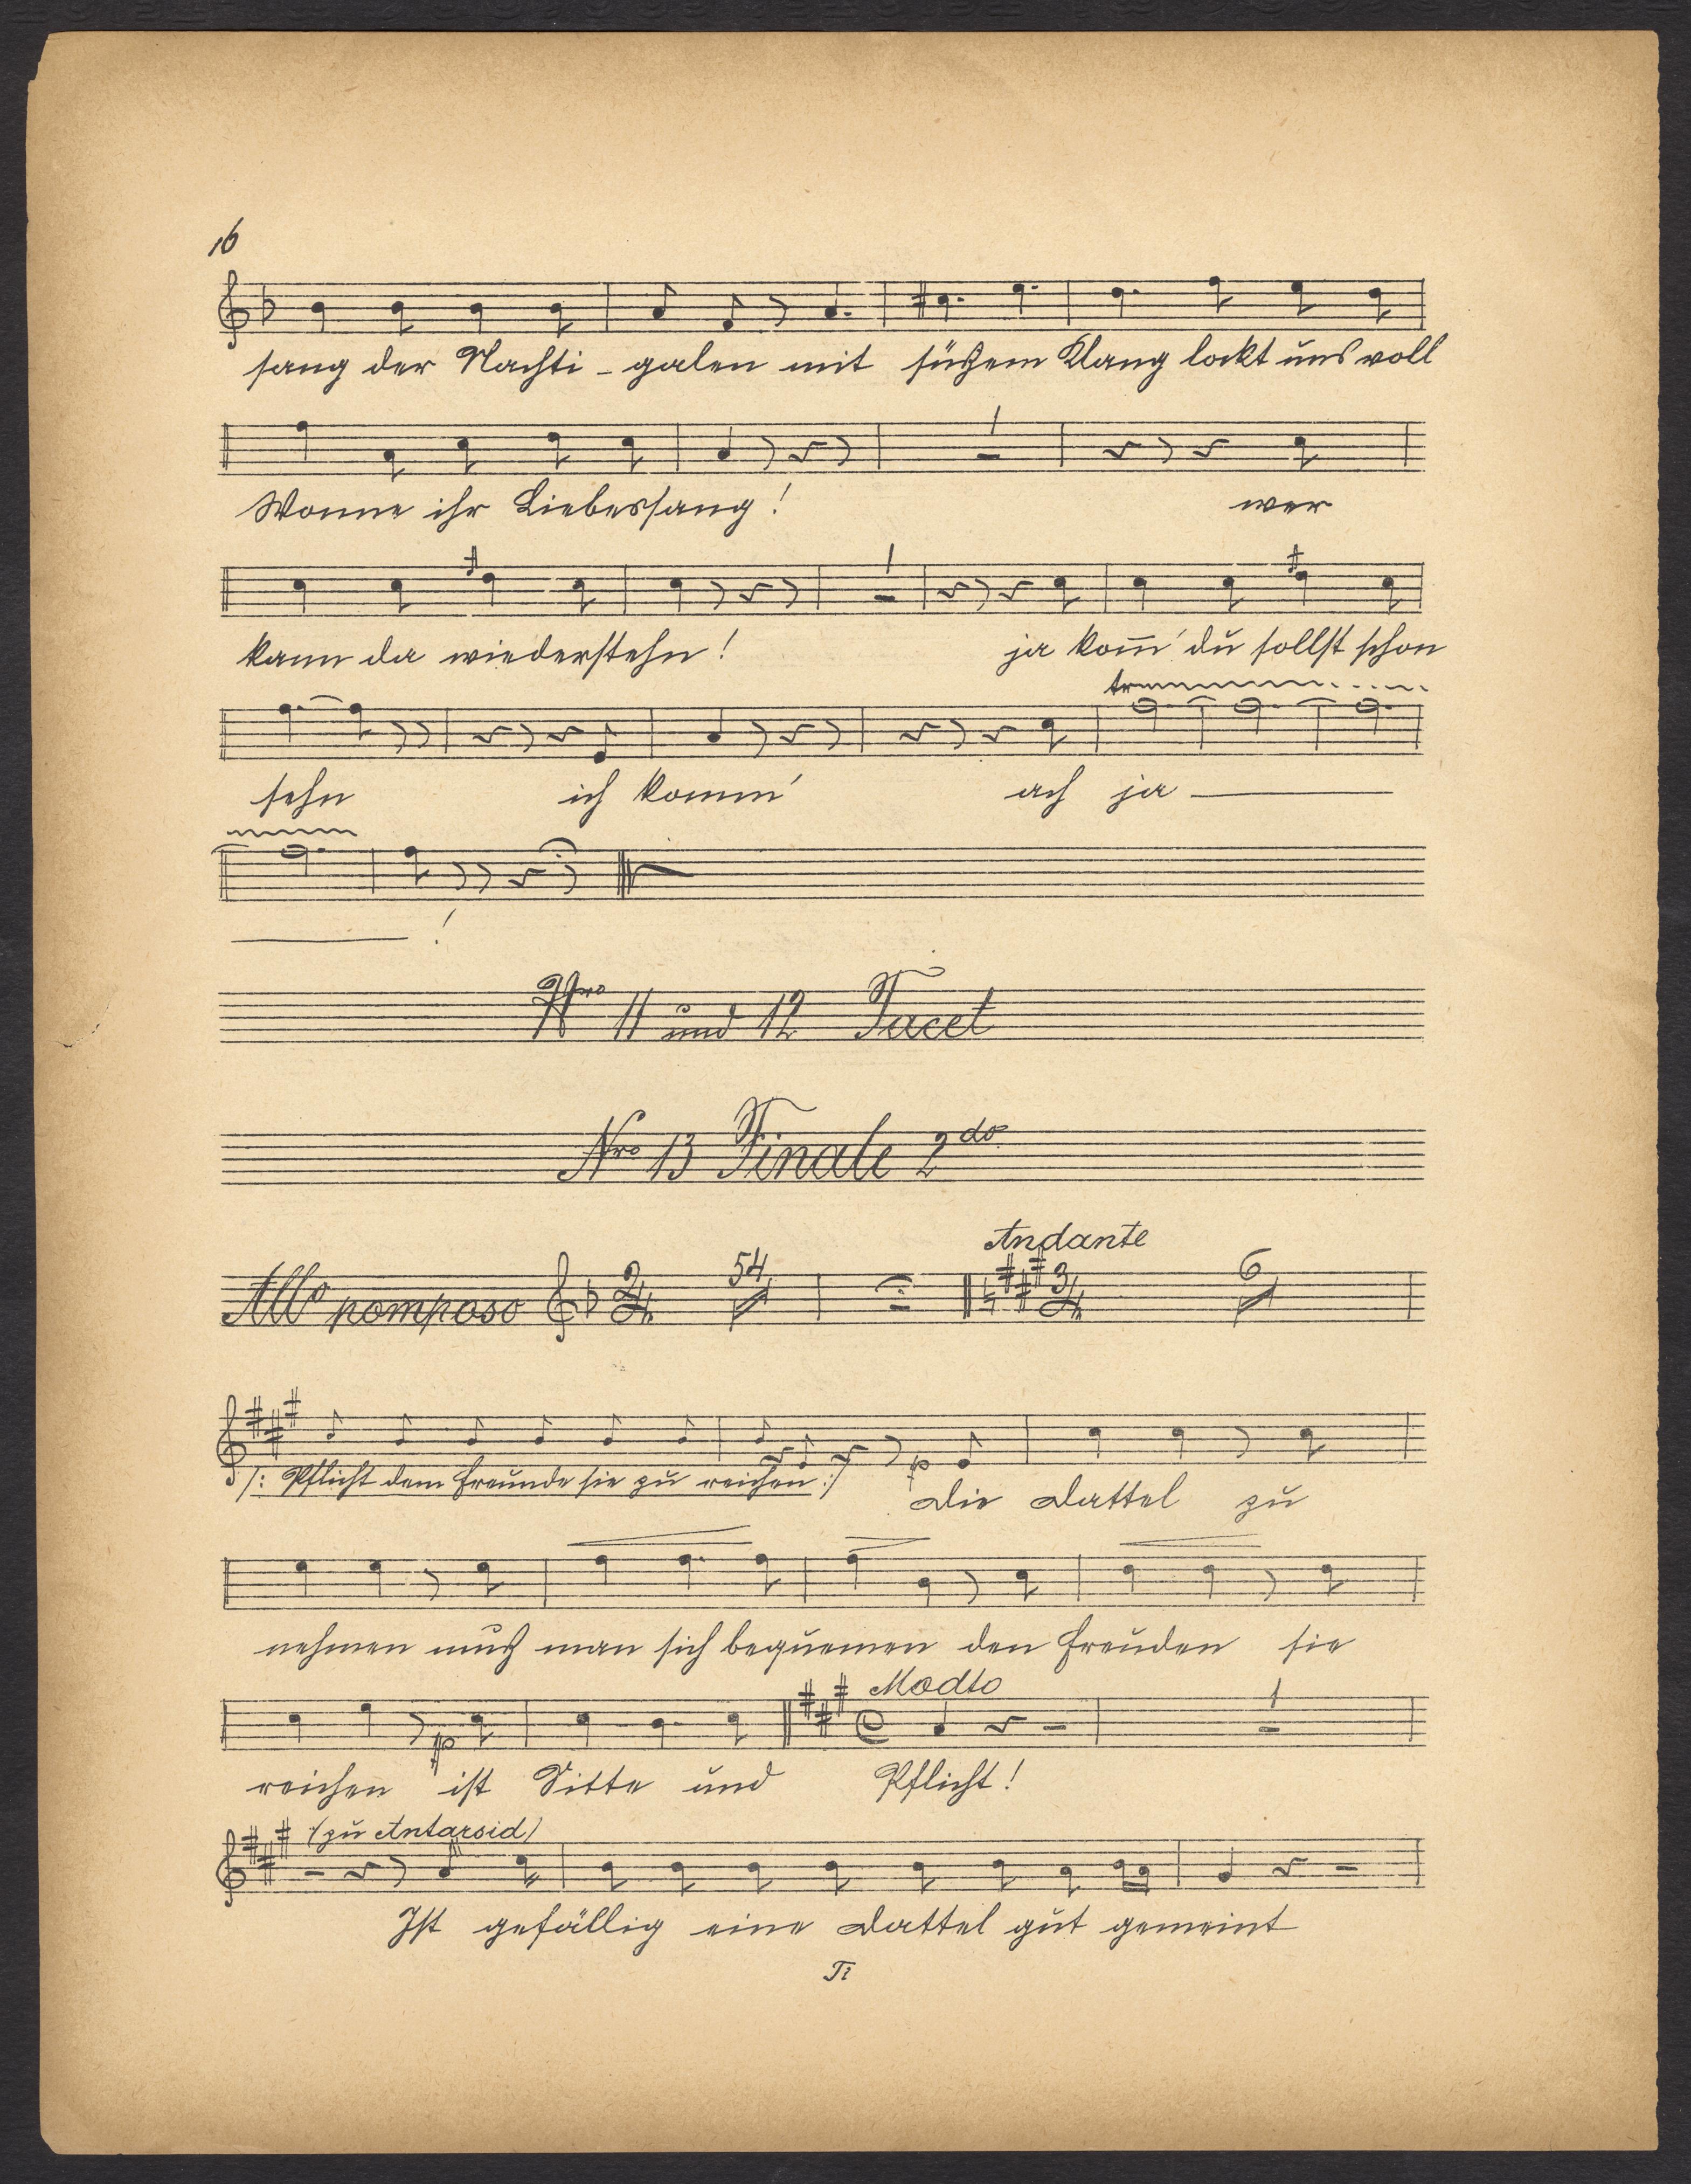 16
sang der Nachti - galen mit süßem Klang lockt uns voll
Wonne ihr Liebessang! wer
kann da wiederstehn! ja kom̄' du sollst schon
tr
sehn ich komm' ach ja
!
Nro 11 und 12 Tacet
Nro 13 Finale 2do
Andante
Allo pomposo 2/4 54 3/4 6
/: Pflicht dem Freunde sie zu reichen :/ p Die Dattel zu
nehmen muß man sich bequemen den Freuden sie
Modto
reichen ist Sitte und Pflicht!
(zu Antarsid)
Ist gefällig eine Dattel gut gemeint